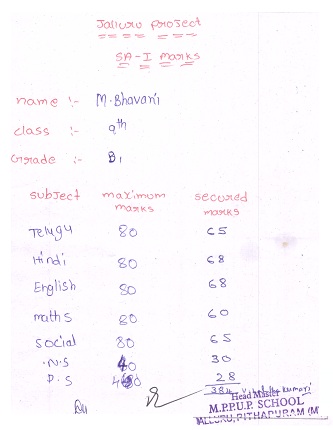 Jaluru project
SA-I marks
name :- M.Bhavani
class :- 9th
Grade :- B1
subject maximum marks secured marks
Telugu 80 65
Hindi 80 68
English 80 68
maths 80 60
social 80 65
N.S 40 30
P.S 40 28
384
Head Master
M.P.P.U.P. SCHOOL
PITHAPURAM (M